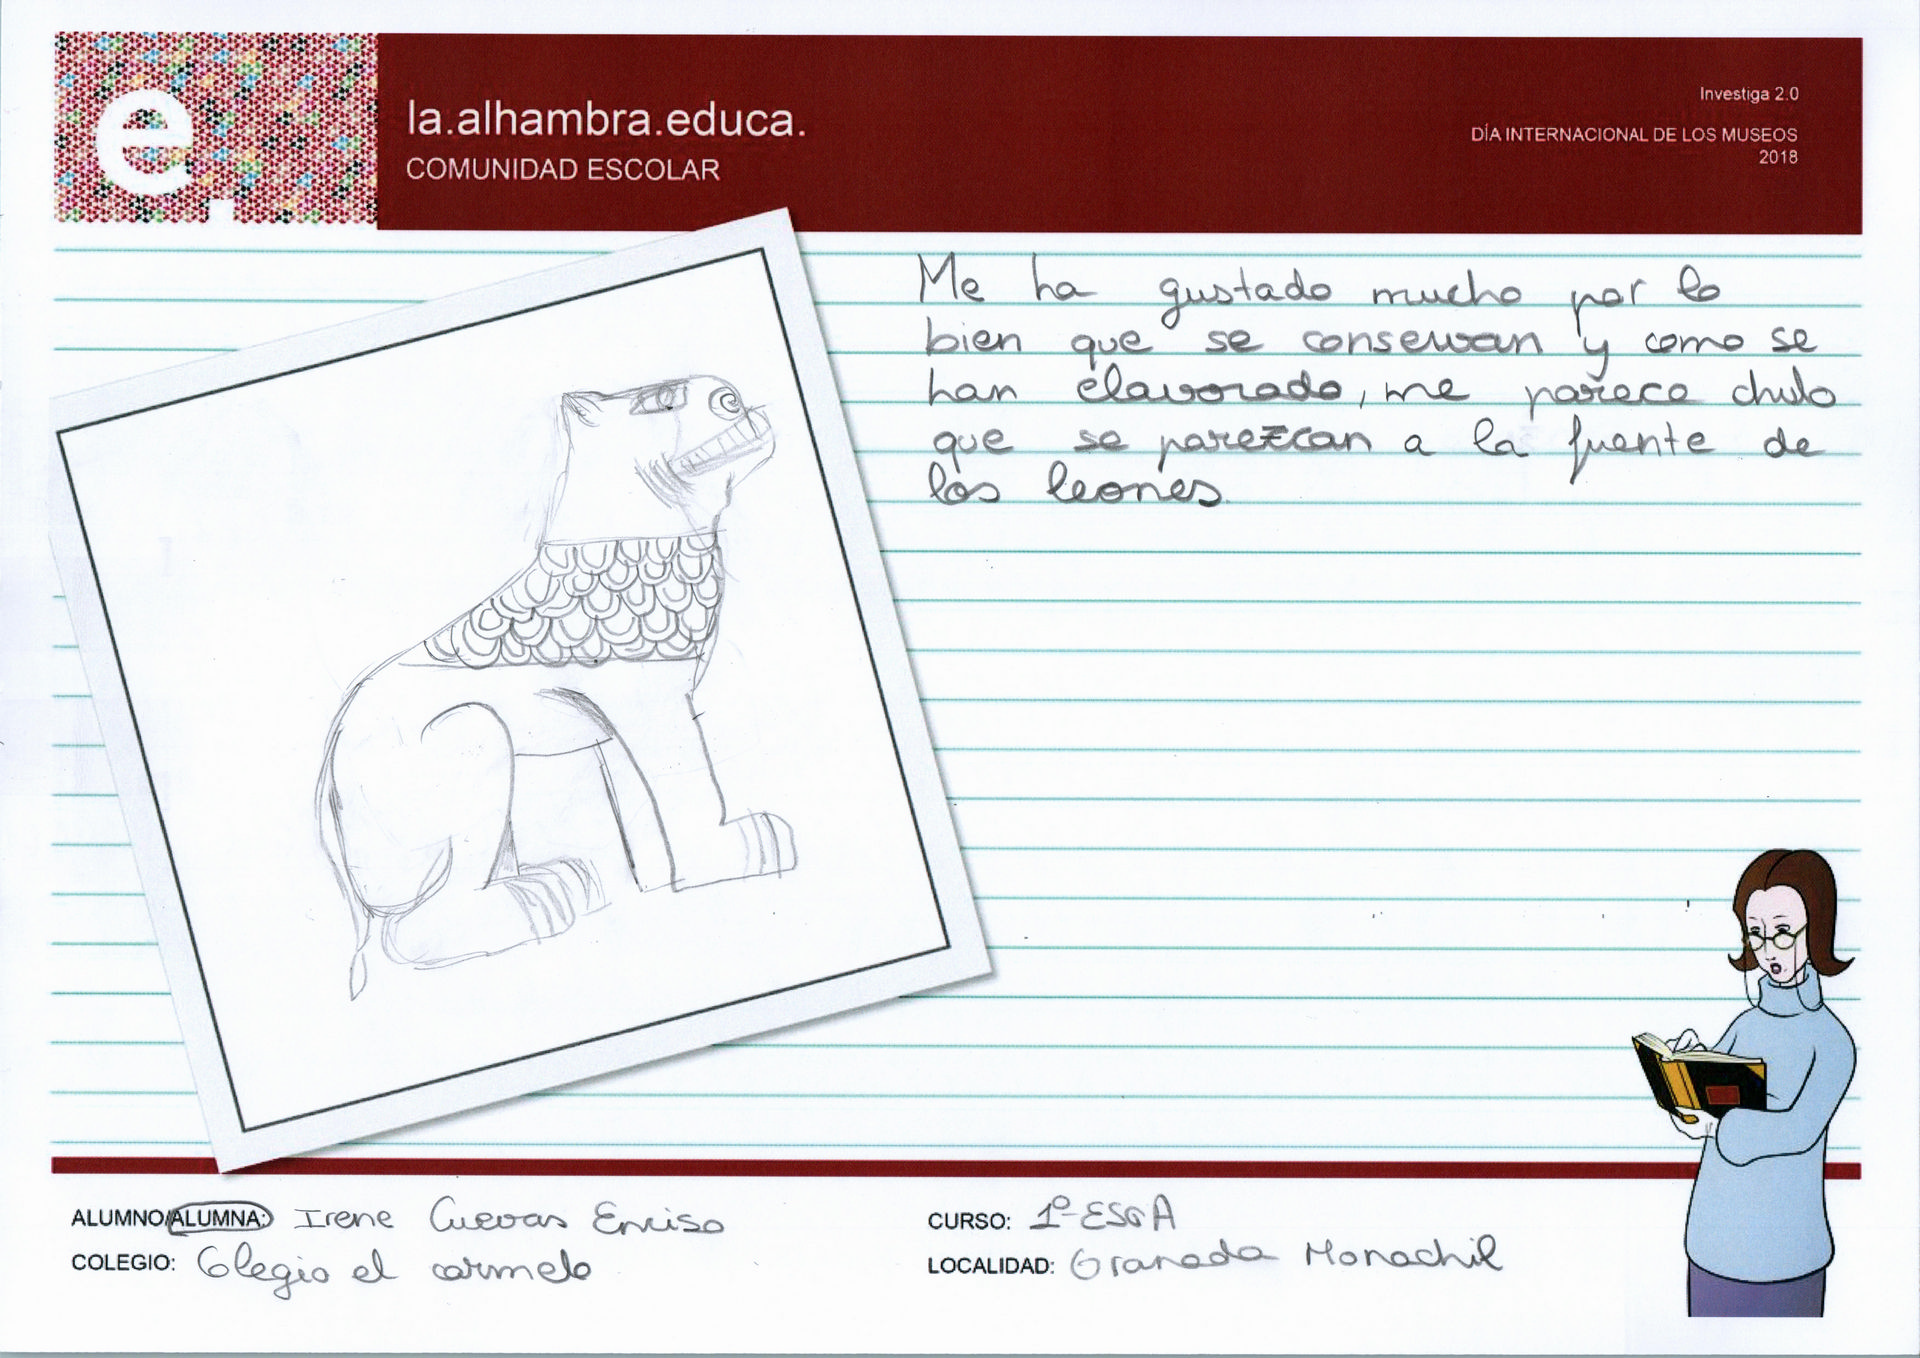 e.
la.alhambra.educa.
COMUNIDAD ESCOLAR
Investiga 2.0
DÍA INTERNACIONAL DE LOS MUSEOS
2018
Me ha gustado mucho por lo
bien que se conservan y como se
han elavorado, me parece chulo
que se parezcan a la fuente de
los leones.
ALUMNO/ALUMNA: Irene Cuevas Enciso
COLEGIO: Colegio el carmelo
CURSO: 1º ESO A
LOCALIDAD: Granada Monachil